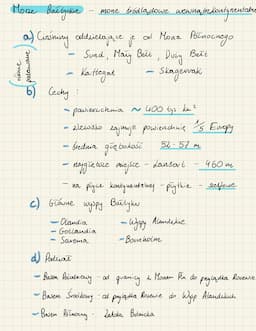 Morze Bałtyckie - morze śródlądowe wewnątrzkontynentalne
a) Cieśniny oddzielające je od Morza Północnego
- Sund, Mały Bełt, Duży Bełt
- Kattegat - Skagerrak
b) Cechy:
- powierzchnia ~ 400 tys km²
- zlewisko zajmuje powierzchnię 1/5 Europy
- średnia głębokość 52-57 m
- najgłębsze miejsce - Landsort - 460 m
- na płycie kontynentalnej - płytkie - szelfowe
c) Główne wyspy Bałtyku
- Olandia - Wyspy Alandzkie
- Gotlandia - Bornholm
- Sarema
d) Podział
- Basen Południowy - od granicy z Morzem Pn do przylądka Ristna
- Basen Środkowy - od przylądka Ristna do Wysp Alandzkich
- Basen Północny - Zatoka Botnicka